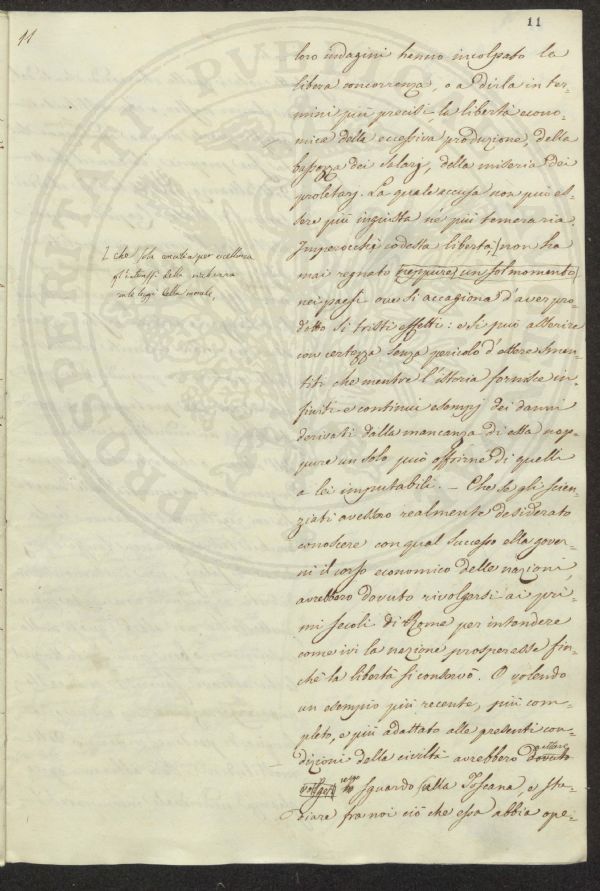 11
11
loro indagini hanno incolpato la
libera concorrenza, o a dirla in ter-
mini più precisi, la libertà econo-
mica della eccessiva produzione, della
bassezza dei salarj, della miseria dei
proletarj. La quale accusa non può es-
sere più ingiusta né più temeraria.
Imperocchè codesta libertà, non ha
mai regnato neppure un sol momento
nei paesi ove si accagiona d'aver pro-
dotto sì tristi effetti: e si può asserire
con certezza senza pericolo d'essere smen-
titi che mentre l'istoria fornisce in-
finiti e continui esempj dei danni
derivati dalla mancanza di essa nep-
pure un solo può offrirne di quelli
a lei imputabili. — Che se gli scien-
ziati avessero realmente desiderato
conoscere con qual successo ella gover-
ni il corso economico delle nazioni,
avrebbero dovuto rivolgersi ai pri-
mi secoli di Roma per intendere
come ivi la nazione prosperesse fin-
chè la libertà si conservò. O volendo
un esempio più recente, più com-
pleto, e più adattato alle presenti con-
dizioni della civiltà avrebbero dovuto gettare
volgere lo sguardo sulla Toscana, e stu-
diare fra noi ciò che essa abbia ope-
che sola
gl'interessi della
colle leggi della morale,
PROSPERITATI PVBLICAE